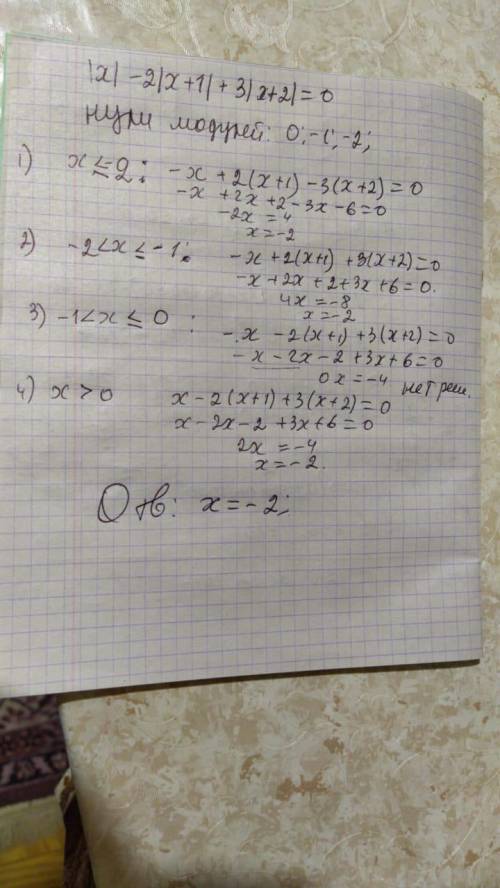 |x| -2|x+1| +3|x+2| = 0
нули модулей: 0; -1; -2;
1) x ≤ -2 : -x + 2(x+1) -3(x+2) = 0
-x +2x +2 -3x -6 = 0
-2x = 4
x = -2
2) -2 < x ≤ -1 : -x +2(x+1) +3(x+2) = 0
-x +2x +2 +3x +6 = 0.
4x = -8
x = -2
3) -1 < x ≤ 0 : -x -2(x+1) +3(x+2) = 0
-x -2x -2 +3x +6 = 0
0x = -4 нет реш.
4) x > 0 x -2(x+1) +3(x+2) = 0
x -2x -2 +3x +6 = 0
2x = -4
x = -2.
Отв: x = -2;